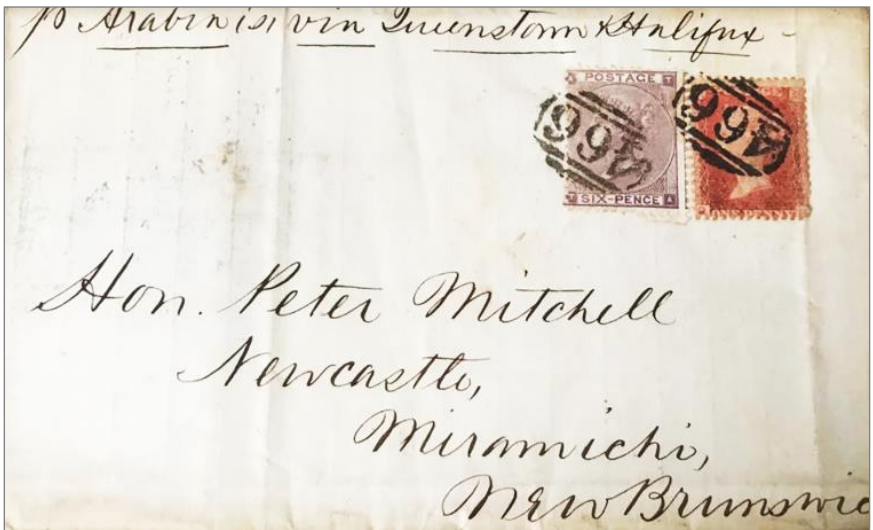 p Arabia via Queenstown & Halifax
POSTAGE
466 466
SIX-PENCE ONE PENNY
Hon. Peter Mitchell
Newcastle,
Miramichi,
New Brunswic